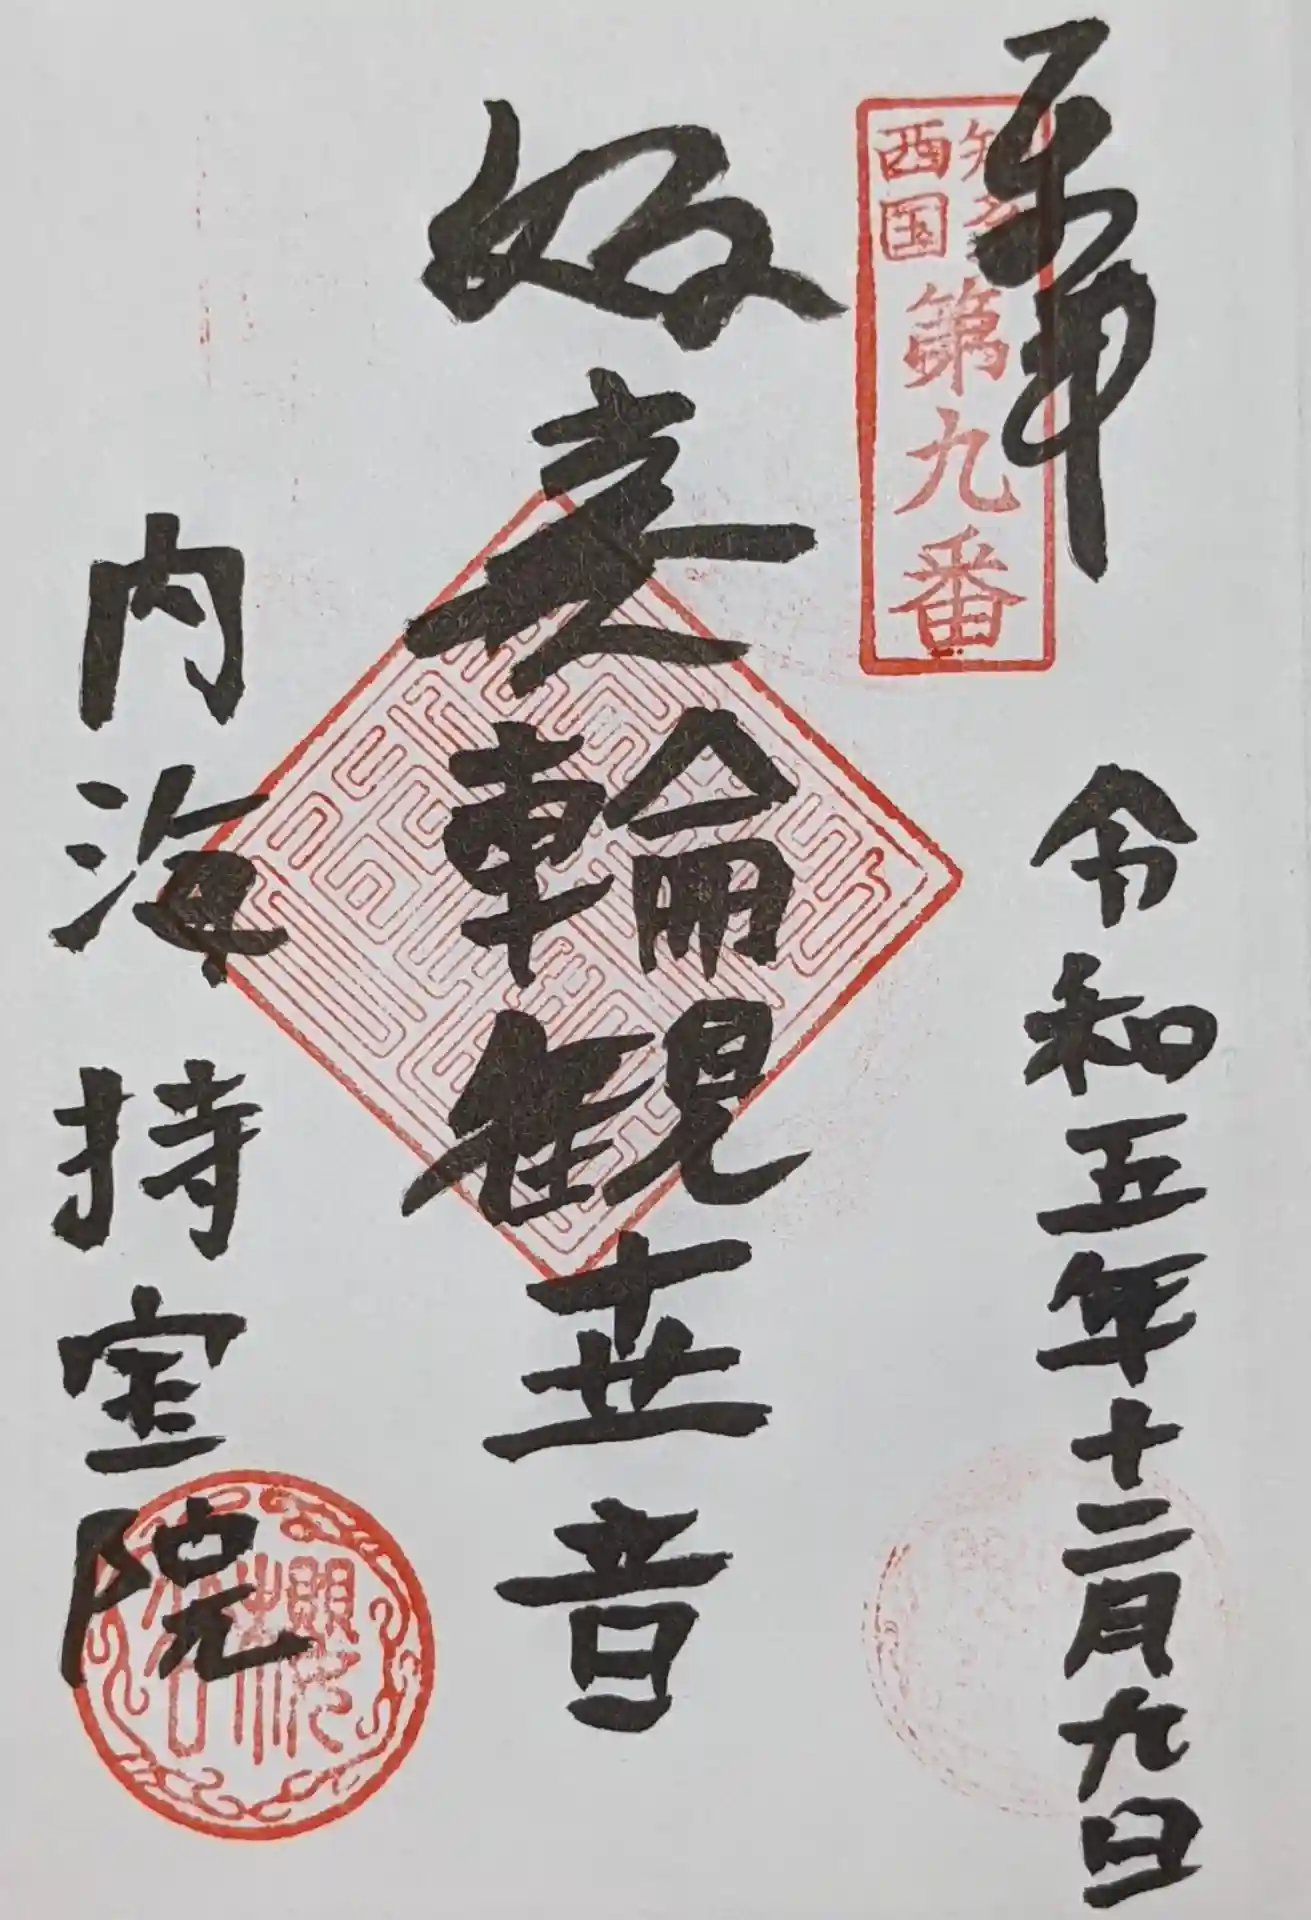 奉拝
令和五年十二月九日
知多
西国
第九番
如意輪観世音
内海持宝院